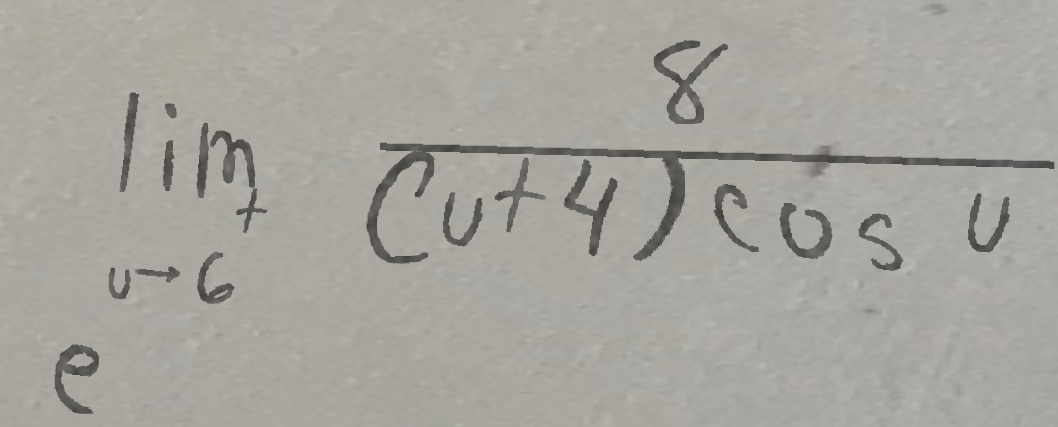 e^{\lim_{u \to 6^+} \frac{8}{(u+4) \cos u}}